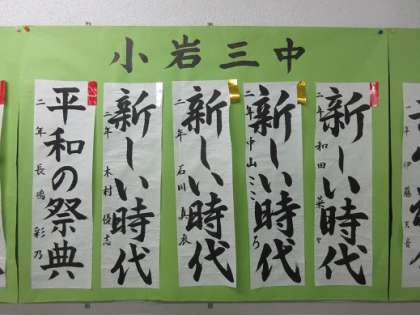 小岩三中
新しい時代
二年 和田 葉々
新しい時代
二年 中山 こころ
新しい時代
二年 石川 真衣
新しい時代
二年 木村 優志
平和の祭典
二年 長嶋 彩乃